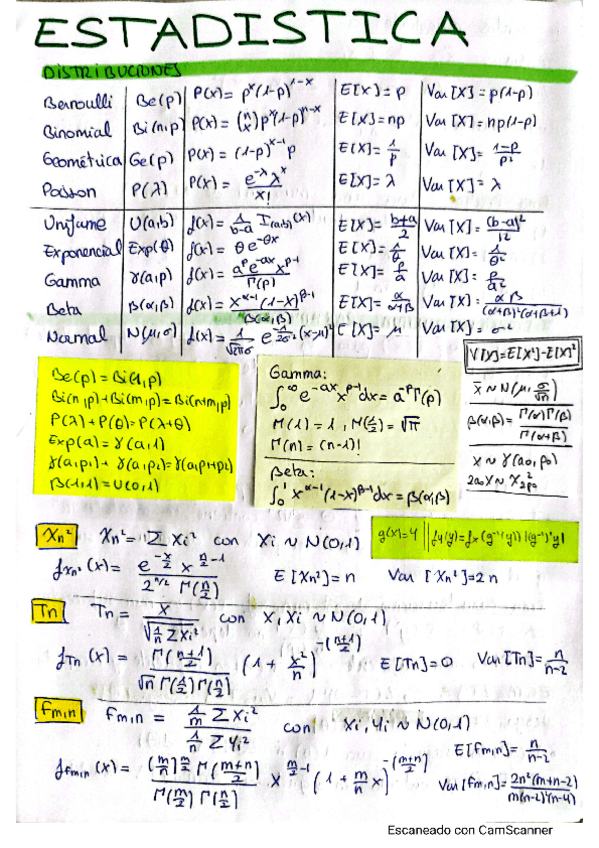 ESTADISTICA
DISTRIBUCIONES
Bernoulli Be(p) P(x) = p^x(1-p)^{1-x} E[X] = p Var[X] = p(1-p)
Binomial Bi(n,p) P(x) = (n x) p^x(1-p)^{n-x} E[X] = np Var[X] = np(1-p)
Geométrica Ge(p) P(x) = (1-p)^{x-1} p E[X] = 1/p Var[X] = 1-p/p²
Poisson P(λ) P(x) = e^{-λ} λ^x / x! E[X] = λ Var[X] = λ
Uniforme U(a,b) f(x) = 1/b-a I_{(a,b)}(x) E[X] = b+a/2 Var[X] = (b-a)²/12
Exponencial Exp(θ) f(x) = θe^{-θx} E[X] = 1/θ Var[X] = 1/θ²
Gamma γ(a,p) f(x) = a^p e^{-ax} x^{p-1} / Γ(p) E[X] = p/a Var[X] = p/a²
Beta β(α,β) f(x) = x^{α-1}(1-x)^{β-1} / β(α,β) E[X] = α/α+β Var[X] = αβ/(α+β)²(α+β+1)
Normal N(μ,σ) f(x) = 1/√2πσ e^{-1/2σ²(x-μ)²} E[X] = μ Var[X] = σ²
V[X]=E[X²]-E[X]²
Be(p) = Bi(1,p)
Bi(n,p)+Bi(m,p)=Bi(n+m,p)
P(λ)+P(θ)=P(λ+θ)
Exp(a) = γ(a,1)
γ(a,p₁)+γ(a,p₂)=γ(a,p₁+p₂)
β(1,1)=U(0,1)
Gamma:
∫₀^∞ e^{-ax} x^{p-1} dx = a^{-p} Γ(p)
Γ(1) = 1, Γ(1/2) = √π
Γ(n) = (n-1)!
Beta:
∫₀¹ x^{α-1}(1-x)^{β-1} dx = β(α,β)
x̄ ~ N(μ, σ/√n)
β(α,β) = Γ(α)Γ(β)/Γ(α+β)
X ~ γ(a₀,p₀)
2a₀X ~ χ²_{2p₀}
χn² χn² = Σ Xi² con Xi ~ N(0,1)
g(x)=y || fy(y)=fx(g⁻¹(y))|(g⁻¹)'y|
f_{χn²}(x) = e^{-x/2} x^{n/2-1} / 2^{n/2} Γ(n/2) E[χn²] = n Var[χn²] = 2n
Tn Tn = X / √(1/n Σ Xi²) con X, Xi ~ N(0,1)
f_{Tn}(x) = Γ(n+1/2) / √n Γ(1/2) Γ(n/2) (1 + x²/n)^{-(n+1/2)} E[Tn]=0 Var[Tn]= n/n-2
Fm,n Fm,n = 1/m Σ Xi² / 1/n Σ Yi² con Xi, Yi ~ N(0,1)
E[Fm,n] = n/n-2
f_{Fm,n}(x) = (m/n)^{m/2} Γ(m+n/2) / Γ(m/2) Γ(n/2) x^{m/2-1} (1 + m/n x)^{-(m+n/2)} Var[Fm,n] = 2n²(m+n-2)/m(n-2)²(n-4)
Escaneado con CamScanner